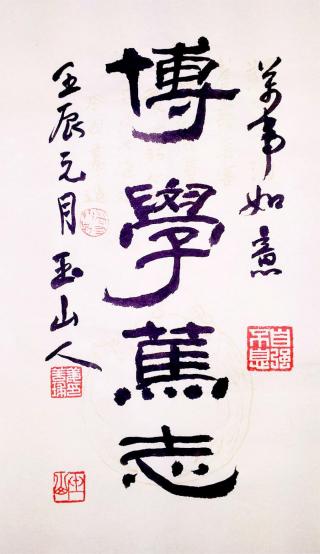 萬事如意
自强不息
博學篤志
壬辰元月玉山人